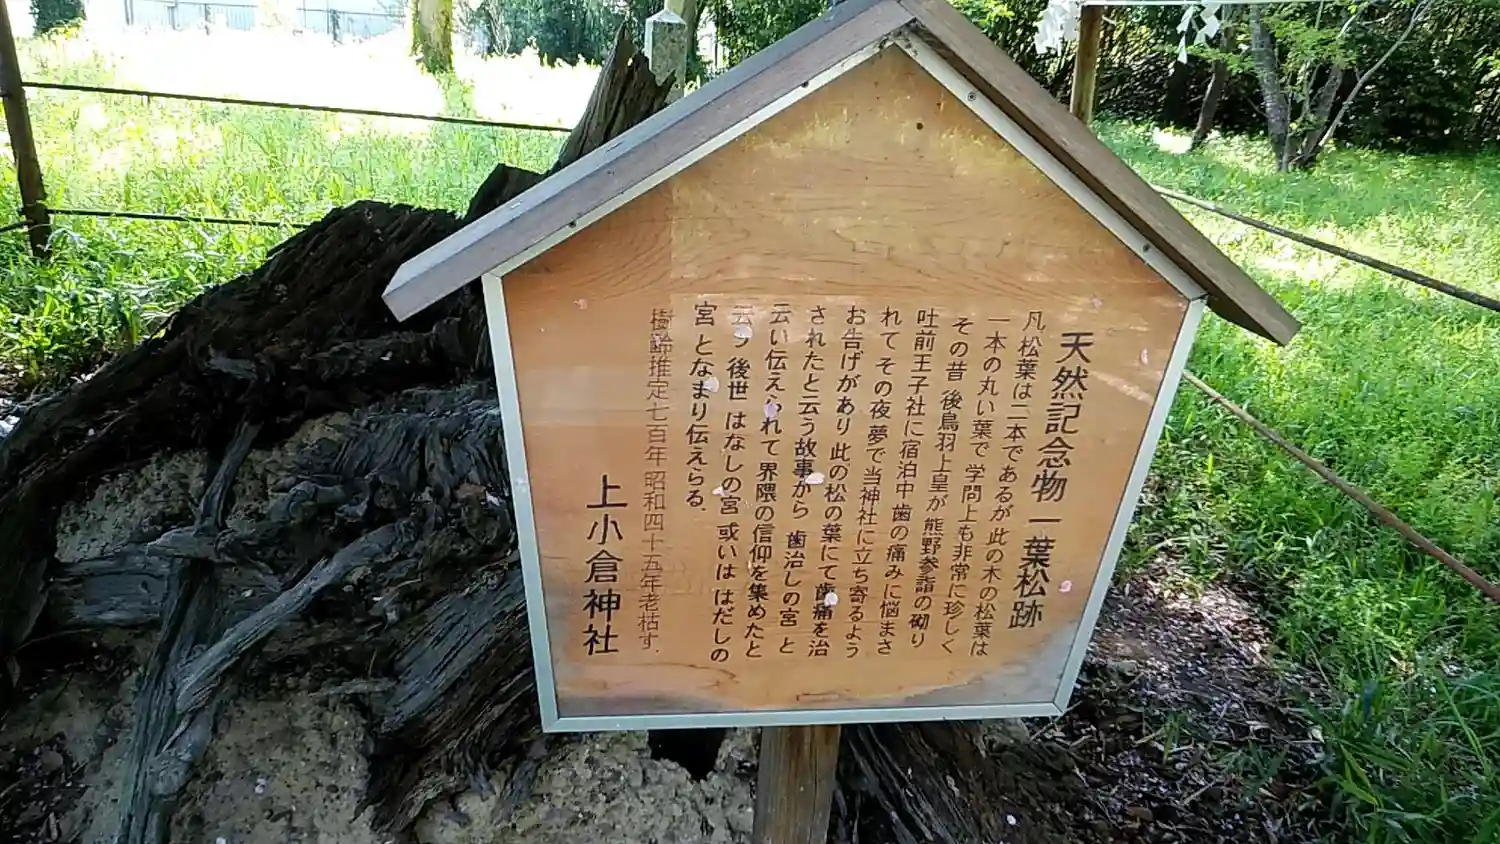 天然記念物 一葉松跡
凡松葉は二本であるが 此の木の松葉は
一本の丸い葉で 学問上も非常に珍しく
その昔 後鳥羽上皇が 熊野参詣の砌り
吐前王子社に宿泊中 歯の痛みに悩まさ
れて その夜 夢で当神社に立ち寄るよう
お告げがあり 此の松の葉にて歯痛を治
されたと云う故事から 歯治しの宮 と
云い伝えられて 界隈の信仰を集めたと
云う 後世 はなしの宮 或いは はだしの
宮 となまり伝えらる.
樹齢推定七百年 昭和四十五年老枯す.
上小倉神社